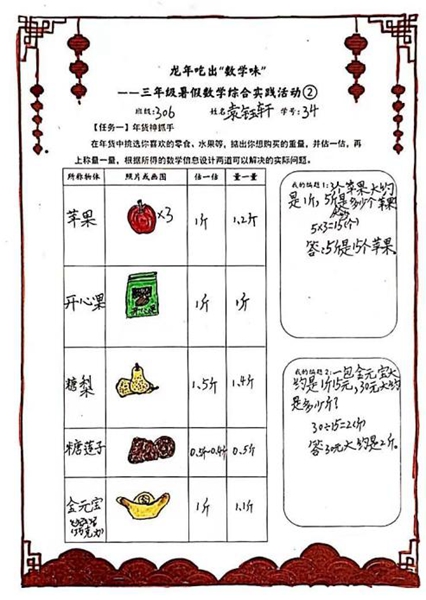 龙年吃出“数学味”
——三年级暑假数学综合实践活动②
班级:306 姓名:袁钰轩 学号:34
【任务一】年货神抓手
在年货中挑选你喜欢的零食、水果等，掂出你想购买的重量，并估一估，再
上称量一量，根据所得的数学信息设计两道可以解决的实际问题。
所称物体 照片或画图 估一估 量一量
苹果 ×3 1斤 1.2斤
开心果 1斤 1斤
糖梨 1.5斤 1.4斤
糖莲子 0.3斤-0.4斤 0.5斤
金元宝 1斤 1.1斤
(巧克力)
我的编题1:3个苹果大约
是1斤,5斤是多少个苹果
5×3=15(个)
答:5斤是15个苹果。
我的编题2:一包金元宝大
约是1斤15元,30元大约
是多少斤?
30÷15=2(斤)
答30元大约是2斤。